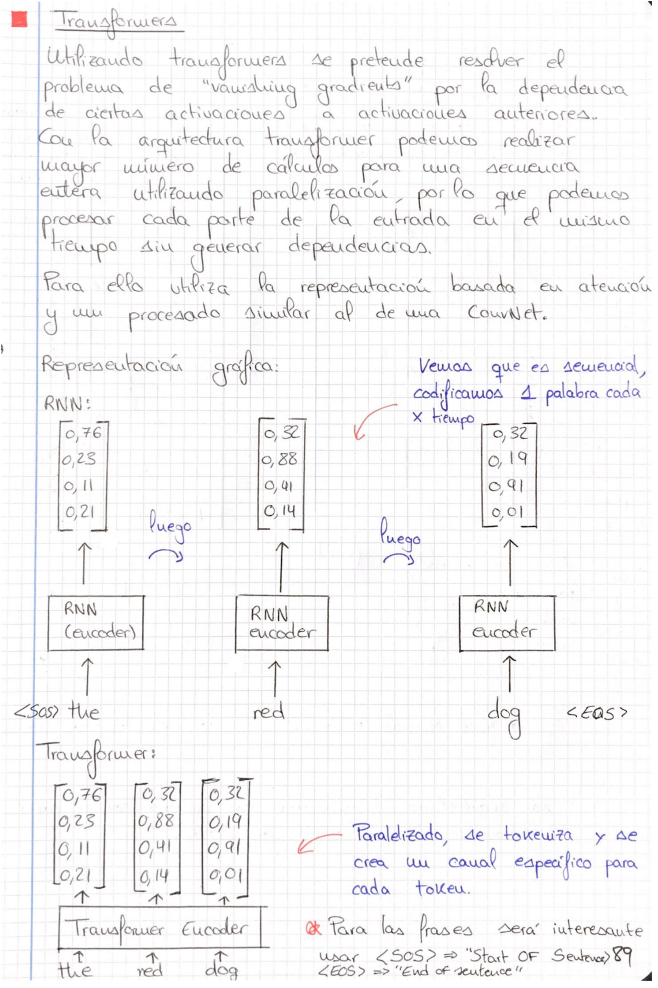 Transformers
Utilizando transformers se pretende resolver el
problema de "vanishing gradients" por la dependencia
de ciertas activaciones a activaciones anteriores..
Con la arquitectura transformer podemos realizar
mayor número de cálculos para una secuencia
entera utilizando paralelización, por lo que podemos
procesar cada parte de la entrada en el mismo
tiempo sin generar dependencias.
Para ello utiliza la representación basada en atención
y un procesado similar al de una ConvNet.
Representación gráfica:
Vemos que es secuencial,
codificamos 1 palabra cada
x tiempo
RNN:
0,76 0,32 0,32
0,23 0,88 0,19
0,11 0,41 0,91
0,21 0,14 0,01
luego luego
RNN RNN RNN
(encoder) encoder encoder
<SOS> the red dog <EOS>
Transformer:
0,76 0,32 0,32
0,23 0,88 0,19
0,11 0,41 0,91
0,21 0,14 0,01
Paralelizado, se tokeniza y se
crea un canal específico para
cada token.
Transformer Encoder
the red dog
* Para las frases será interesante
usar <SOS> => "Start OF Sentence) 89
<EOS> => "End of sentence"